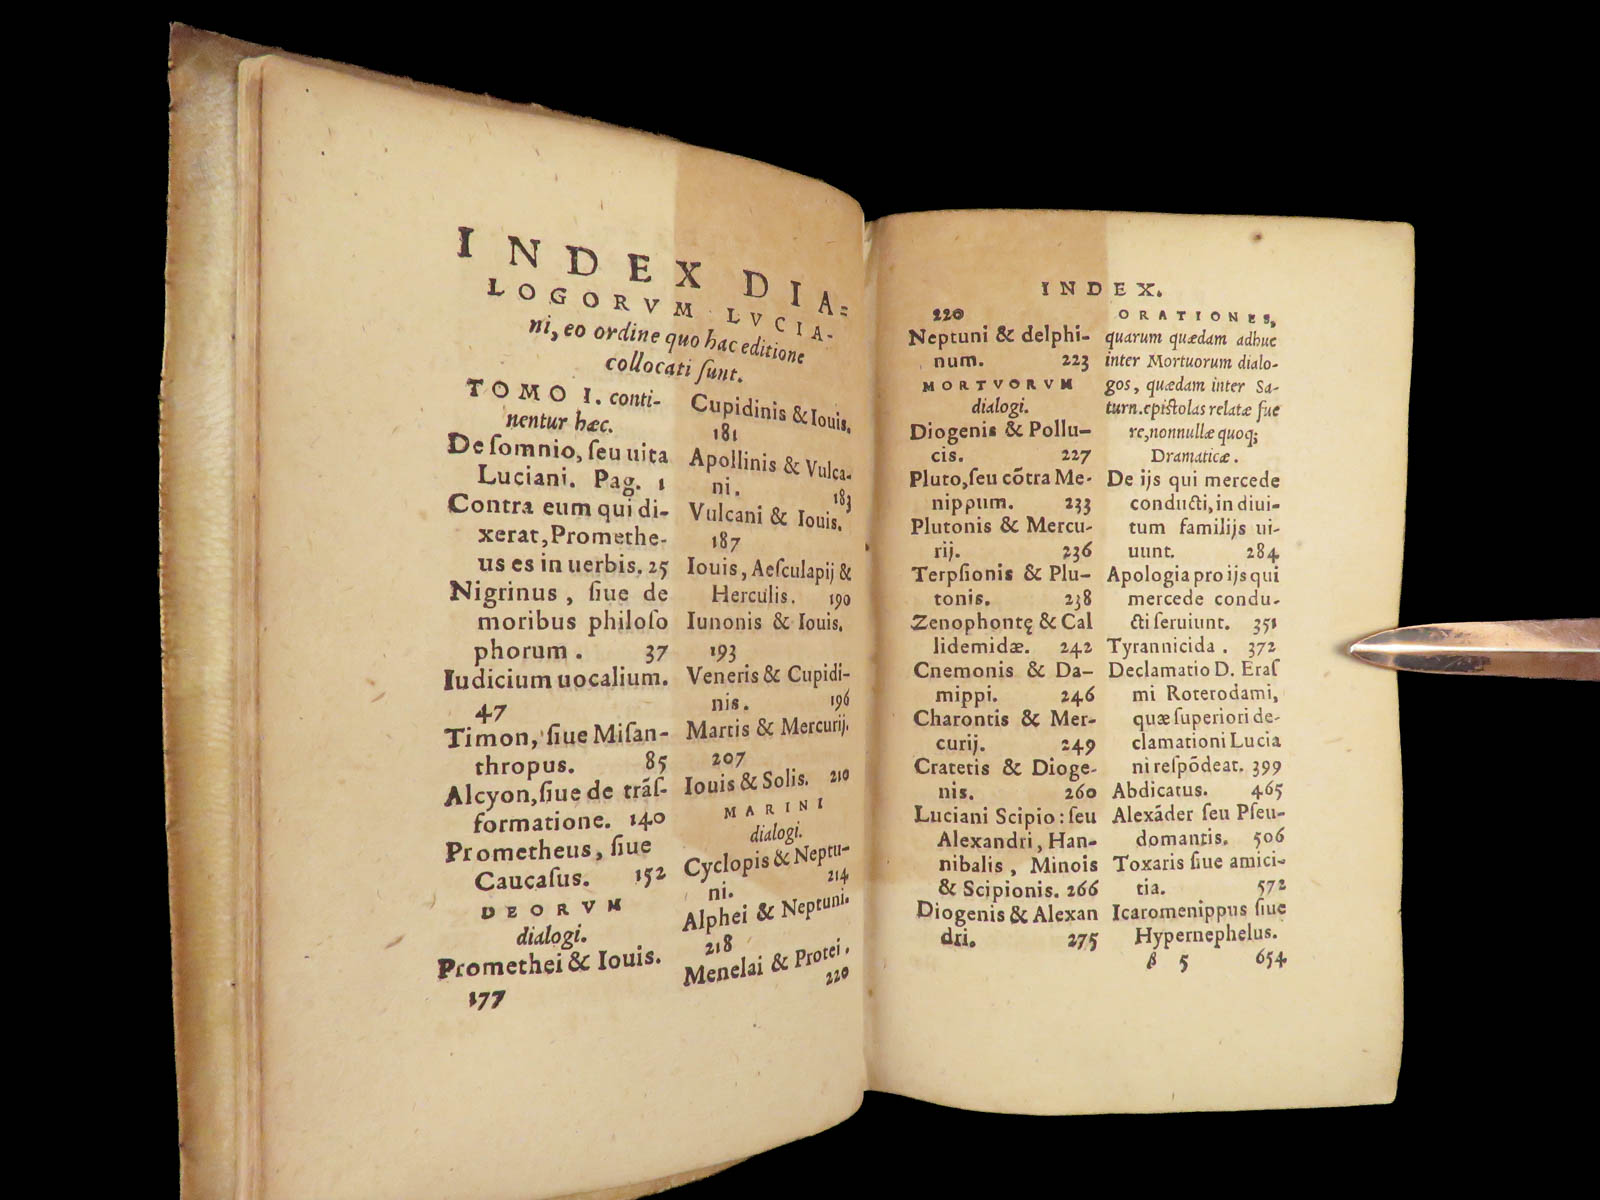 INDEX DIA=
LOGORVM LVCIA-
ni, eo ordine quo hac editione
collocati ſunt.
TOMO I. conti-
nentur hæc.
De ſomnio, ſeu uita
Luciani. Pag. 1
Contra eum qui di-
xerat, Promethe-
us es in uerbis. 25
Nigrinus, ſiue de
moribus philoſo
phorum. 37
Iudicium uocalium.
47
Timon, ſiue Miſan-
thropus. 85
Alcyon, ſiue de trãſ-
formatione. 140
Prometheus, ſiue
Caucaſus. 152
DEORVM
dialogi.
Promethei & Iouis.
177
Cupidinis & Iouis.
181
Apollinis & Vulca-
ni. 183
Vulcani & Iouis.
187
Iouis, Aeſculapij &
Herculis. 190
Iunonis & Iouis.
193
Veneris & Cupidi-
nis. 196
Martis & Mercurij.
207
Iouis & Solis. 210
MARINI
dialogi.
Cyclopis & Neptu-
ni. 214
Alphei & Neptuni.
218
Menelai & Protei.
220
INDEX.
220
Neptuni & delphi-
num. 223
MORTVORVM
dialogi.
Diogenis & Pollu-
cis. 227
Pluto, ſeu cõtra Me-
nippum. 233
Plutonis & Mercu-
rij. 236
Terpſionis & Plu-
tonis. 238
Zenophontę & Cal
lidemidæ. 242
Cnemonis & Da-
mippi. 246
Charontis & Mer-
curij. 249
Cratetis & Dioge-
nis. 260
Luciani Scipio: ſeu
Alexandri, Han-
nibalis, Minois
& Scipionis. 266
Diogenis & Alexan
dri. 275
ORATIONES,
quarum quædam adhuc
inter Mortuorum dialo-
gos, quædam inter Sa-
turn. epiſtolas relatæ fue
re, nonnullæ quoq;
Dramaticæ.
De ijs qui mercede
conducti, in diui-
tum familijs ui-
uunt. 284
Apologia pro ijs qui
mercede condu-
cti ſeruiunt. 351
Tyrannicida. 372
Declamatio D. Eraſ
mi Roterodami,
quæ ſuperiori de-
clamationi Lucia
ni reſpõdeat. 399
Abdicatus. 465
Alexãder ſeu Pſeu-
domantis. 506
Toxaris ſiue amici-
tia. 572
Icaromenippus ſiue
Hypernephelus.
β 5 654